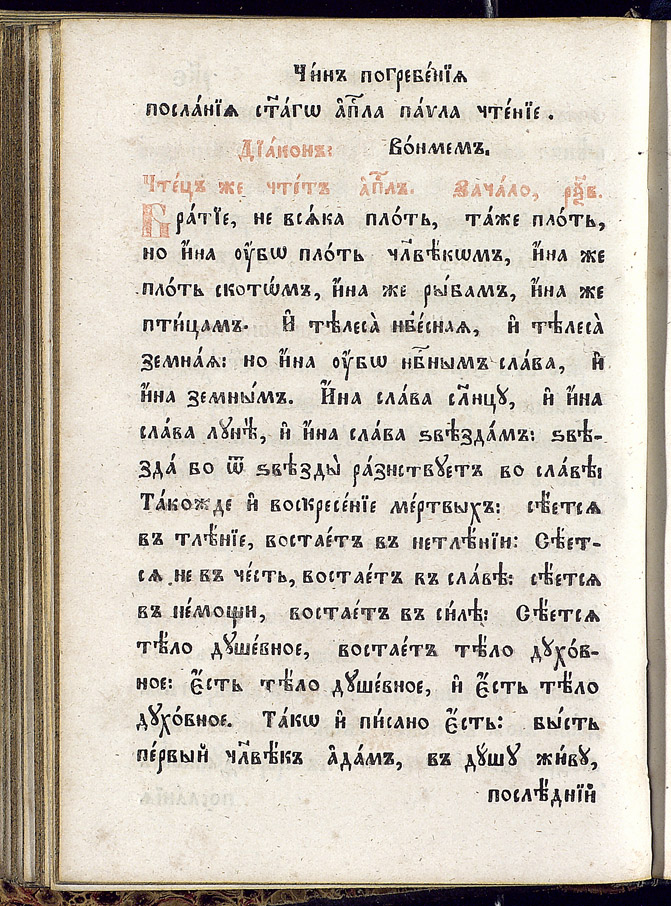 Чи́нъ погребе́нїѧ
посла́нїѧ ст҃а́гѡ а҆пⷭ҇ла па́ѵла чте́нїе .
Дїа́конъ: Во́нмемъ.
Чте́цъ же чте́тъ а҆пⷭ҇лъ. Зача́ло,
Бра́тїе, не всѧ́ка пло́ть, та́же пло́ть,
но и҆́на ᲂу҆́бѡ пло́ть чл҃вѣ́кѡмъ, и҆́на же
пло́ть ското́мъ, и҆́на же ры́бамъ, и҆́на же
пти́цамъ. И҆ тѣлеса̀ нбⷭ҇ѐсная, и҆ тѣлеса̀
земна́я: но и҆́на ᲂу҆́бѡ нбⷭ҇нымъ сла́ва, и҆
и҆́на земны́мъ. И҆́на сла́ва сл҃нцꙋ, и҆ и҆́на
сла́ва лꙋнѣ̀, и҆ и҆́на сла́ва ѕвѣзда́мъ: ѕвѣ-
зда́ бо ѿ ѕвѣзды̀ ра́знствꙋетъ во сла́вѣ:
Та́кожде и҆ воскресе́нїе ме́ртвыхъ: сѣ́етсѧ
въ тлѣ́нїе, востае́тъ въ нетлѣ́нїи: Сѣ́ет-
сѧ не въ че́сть, востае́тъ въ сла́вѣ: сѣ́етсѧ
въ не́мощи, востае́тъ въ си́лѣ: Сѣ́етсѧ
тѣ́ло дꙋше́вное, востае́тъ тѣ́ло дꙋхо́в-
ное: є҆́сть тѣ́ло дꙋше́вное, и҆ є҆́сть тѣ́ло
дꙋхо́вное. Та́кѡ и҆ пи́сано є҆́сть: бы́сть
пе́рвый чл҃вѣ́къ а҆да́мъ, въ дꙋ́шꙋ жи́вꙋ,
послѣ́днїй